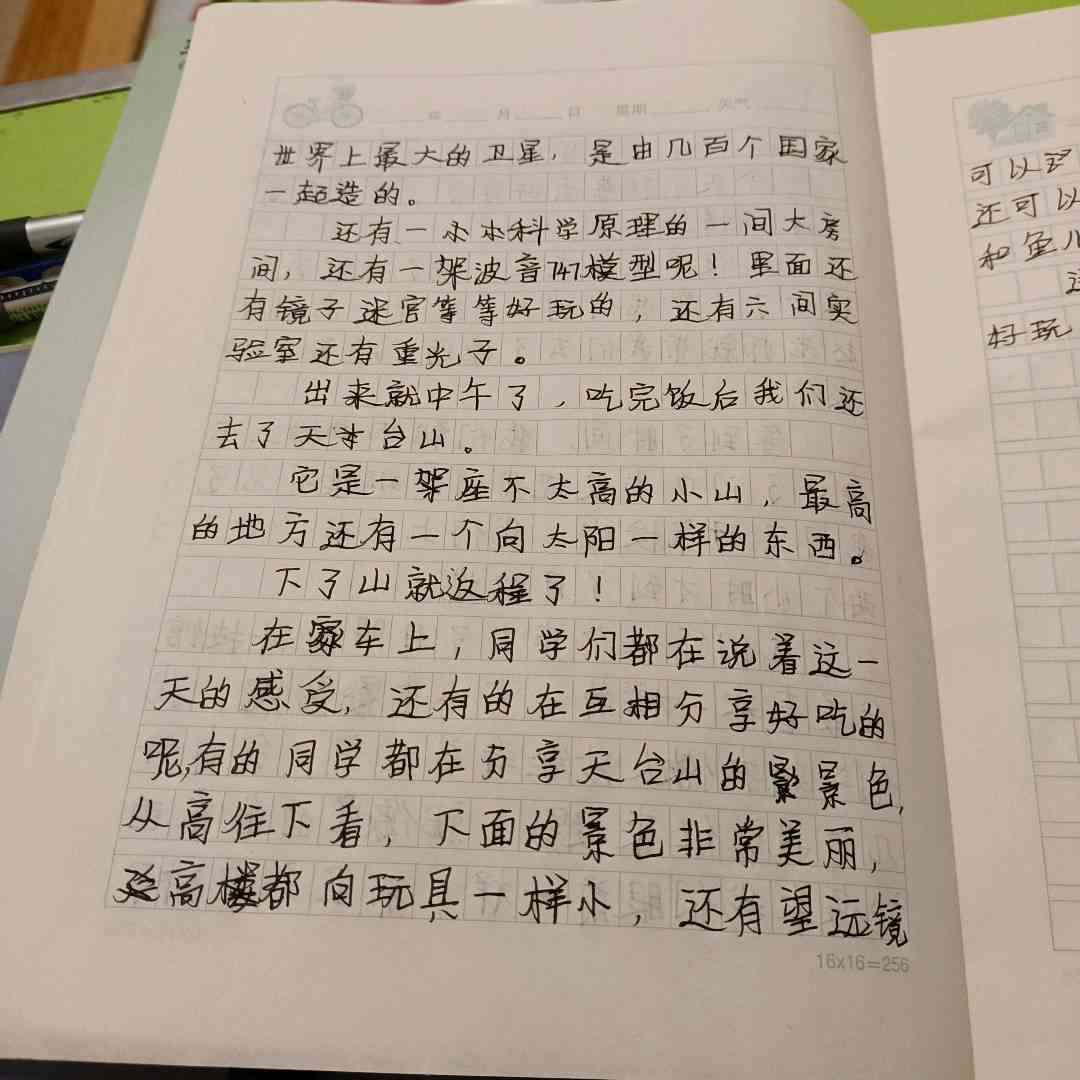 年 月 日 星期 天气
世界上最大的卫星，是由几百个国家
一起造的。
还有一水水科学原理的一间大房
间，还有一架波音747模型呢！里面还
有镜子迷宫等等好玩的，还有六间实
验室还有重光子。
出来就中午了，吃完饭后我们还
去了天台山。
它是一架座不太高的小山，最高
的地方还有一个向太阳一样的东西。
下了山就返程了！
在车上，同学们都在说着这一
天的感受，还有的在互相分享好吃的
呢，有的同学都在分享天台山的景色，
从高往下看，下面的景色非常美丽，
高楼都向玩具一样小，还有望远镜
16x16=256
可以
还可以
和鱼儿
好玩